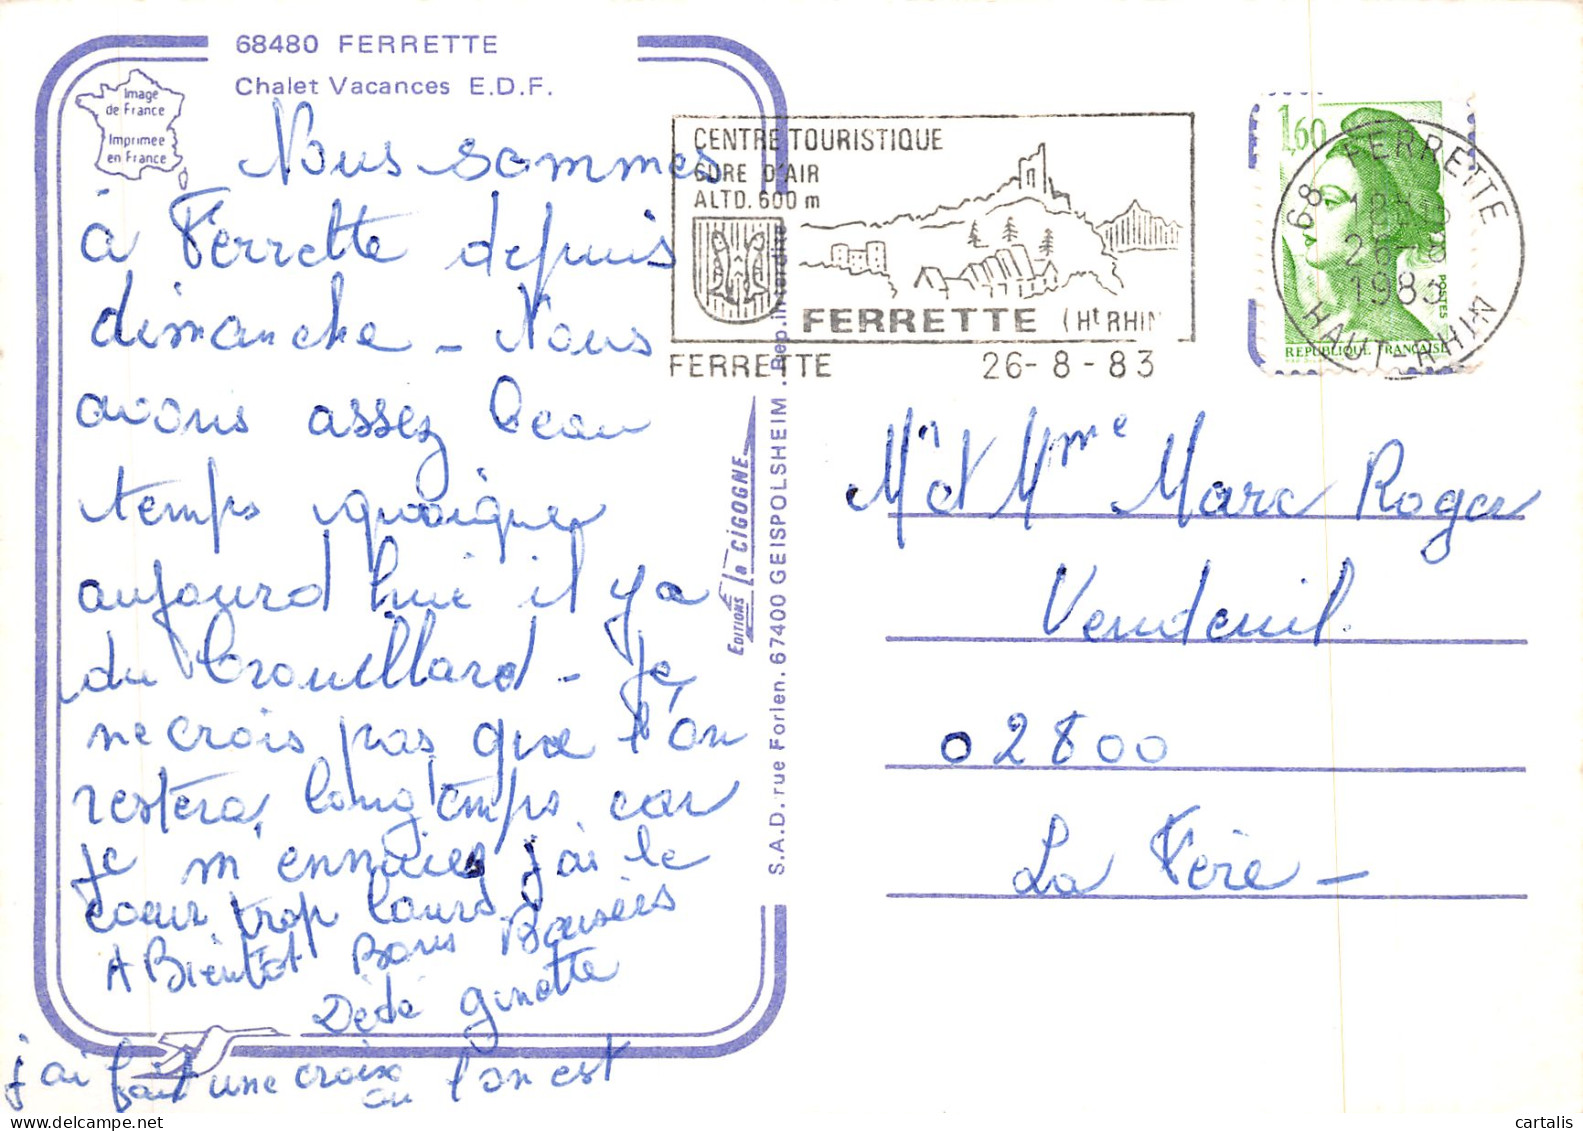 68480 FERRETTE
Chalet Vacances E.D.F.
Image
de France
Imprimee
en France
Nous sommes
à Ferrette depuis
dimanche _ Nous
avons assez beau
temps quoique
aujourd hui il y a
du brouillard _ Je
ne crois pas que l'on
restera longtemps car
je m'ennuies j'ai le
coeur trop lourd
A Bientot Bons Baisers
Dédé ginette
j'ai fait une croix
ou l'on est
EDITIONS la CIGOGNE
S.A.D. rue Forlen. 67400 GEISPOLSHEIM . Rep. interdite
CENTRE TOURISTIQUE
CURE D'AIR
ALTD. 600 m
FERRETTE (Ht RHIN
FERRETTE 26-8-83
1,60
POSTES
REPUBLIQUE FRANÇAISE
68 FERRETTE
26-8
1983
HAUT-RHIN
Mr et Mme Marc Roger
Vendeuil.
02800
La Fère _
cartalis